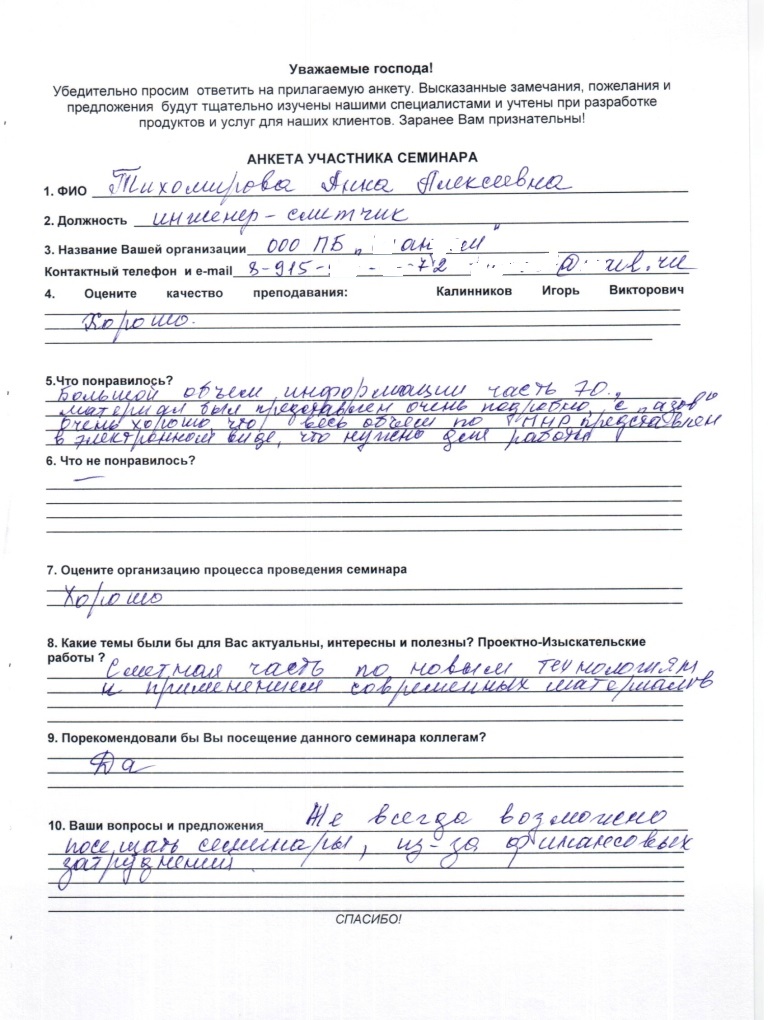 Уважаемые господа!
Убедительно просим ответить на прилагаемую анкету. Высказанные замечания, пожелания и
предложения будут тщательно изучены нашими специалистами и учтены при разработке
продуктов и услуг для наших клиентов. Заранее Вам признательны!
АНКЕТА УЧАСТНИКА СЕМИНАРА
1. ФИО Тихомирова Анна Алексеевна
2. Должность инженер-сметчик
3. Название Вашей организации ООО ПБ „
Контактный телефон и e-mail 8-915- - -72 @
4. Оцените качество преподавания: Калинников Игорь Викторович
Хорошо.
5.Что понравилось?
Большой объем информации часть
материал был представлен очень подробно, с
Очень хорошо что весь объем по ПНР представлен
в электронном виде, что нужно для работы
6. Что не понравилось?
—
7. Оцените организацию процесса проведения семинара
Хорошо
8. Какие темы были бы для Вас актуальны, интересны и полезны? Проектно-Изыскательские
работы ? Сметная часть по новым технологиям
и применением современных материалов
9. Порекомендовали бы Вы посещение данного семинара коллегам?
Да
10. Ваши вопросы и предложения Не всегда возможно
посещать семинары, из-за финансовых
затруднений.
СПАСИБО!